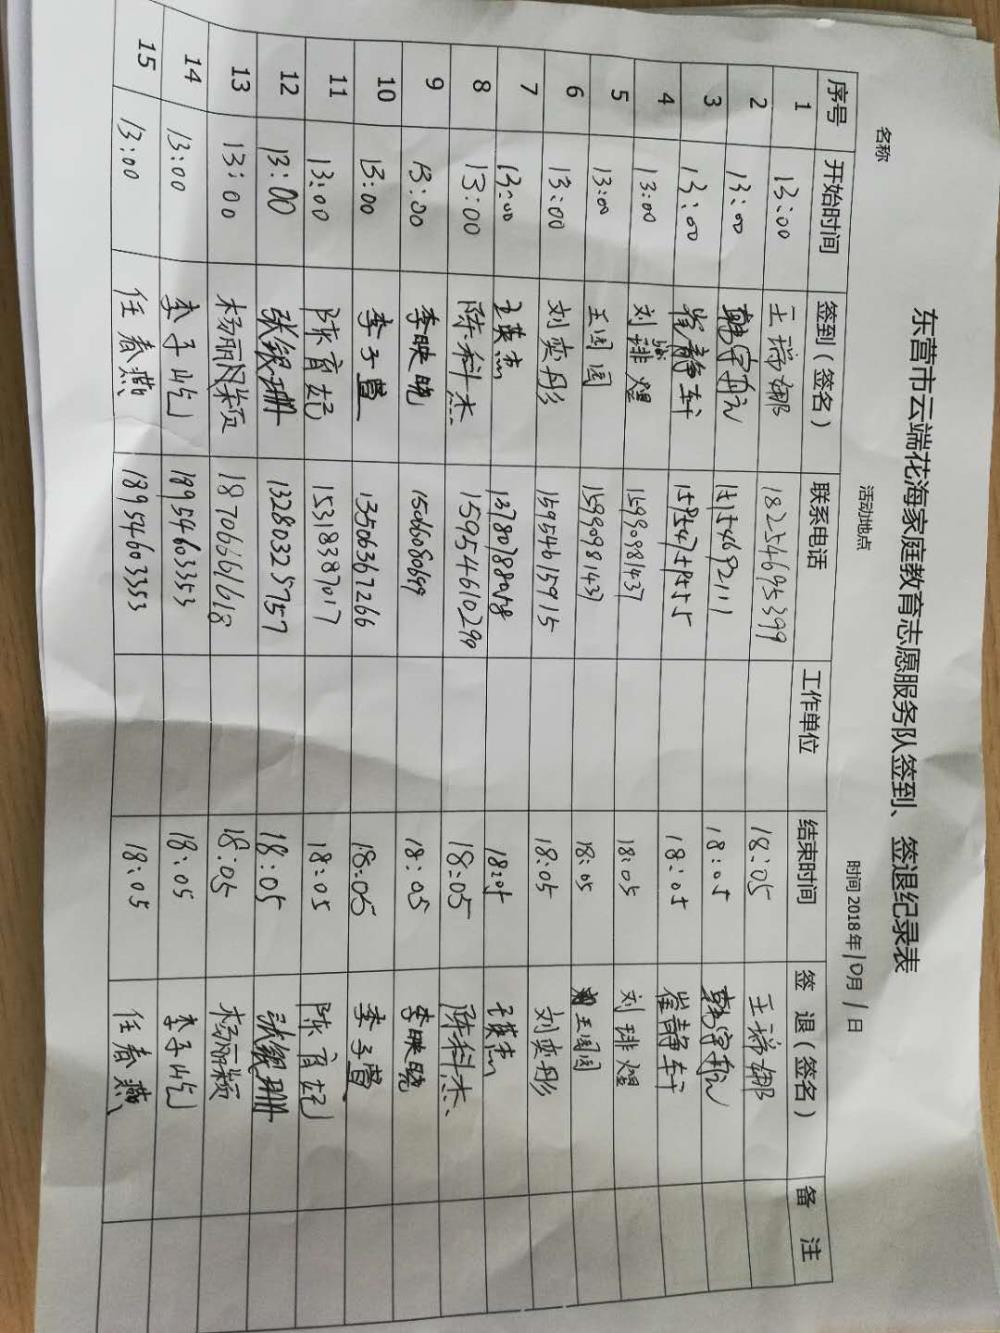 东营市云端花海家庭教育志愿服务队签到、签退纪录表
名称 活动地点 时间 2018年10月1日
序号 开始时间 签到(签名) 联系电话 工作单位 结束时间 签 退(签名) 备 注
1 13:00 王瑞娜 18254695399 18:05 王瑞娜
2 13:00 15154692111 18:05
3 13:00 崔静轩 18:05 崔静轩
4 13:00 刘排煜 15990981437 18:05 刘排煜
5 13:00 王圆圆 15990981437 18:05 王圆圆
6 13:00 刘奕彤 15954615915 18:05 刘奕彤
7 13:00 王英杰 18:05 王英杰
8 13:00 陈科杰 15954610299 18:05 陈科杰
9 13:00 李映晓 15066080699 18:05 李映晓
10 13:00 李子萱 13506367266 18:05 李子萱
11 13:00 陈育起 15318387017 18:05 陈育起
12 13:00 张银珊 13280325757 18:05 张银珊
13 13:00 杨丽颖 18706661618 18:05 杨丽颖
14 13:00 李子屹 18954603353 18:05 李子屹
15 13:00 任春燕 18954603353 18:05 任春燕